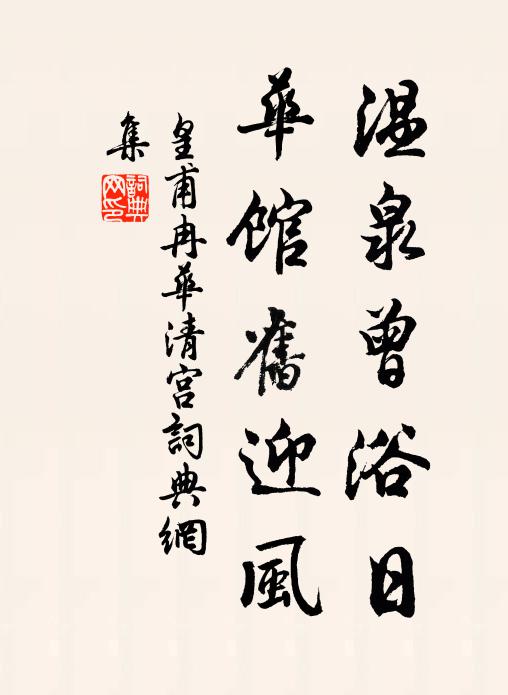 温泉曾浴日
華館舊迎風
皇甫冉華清宮詞典網
集
詞典網印